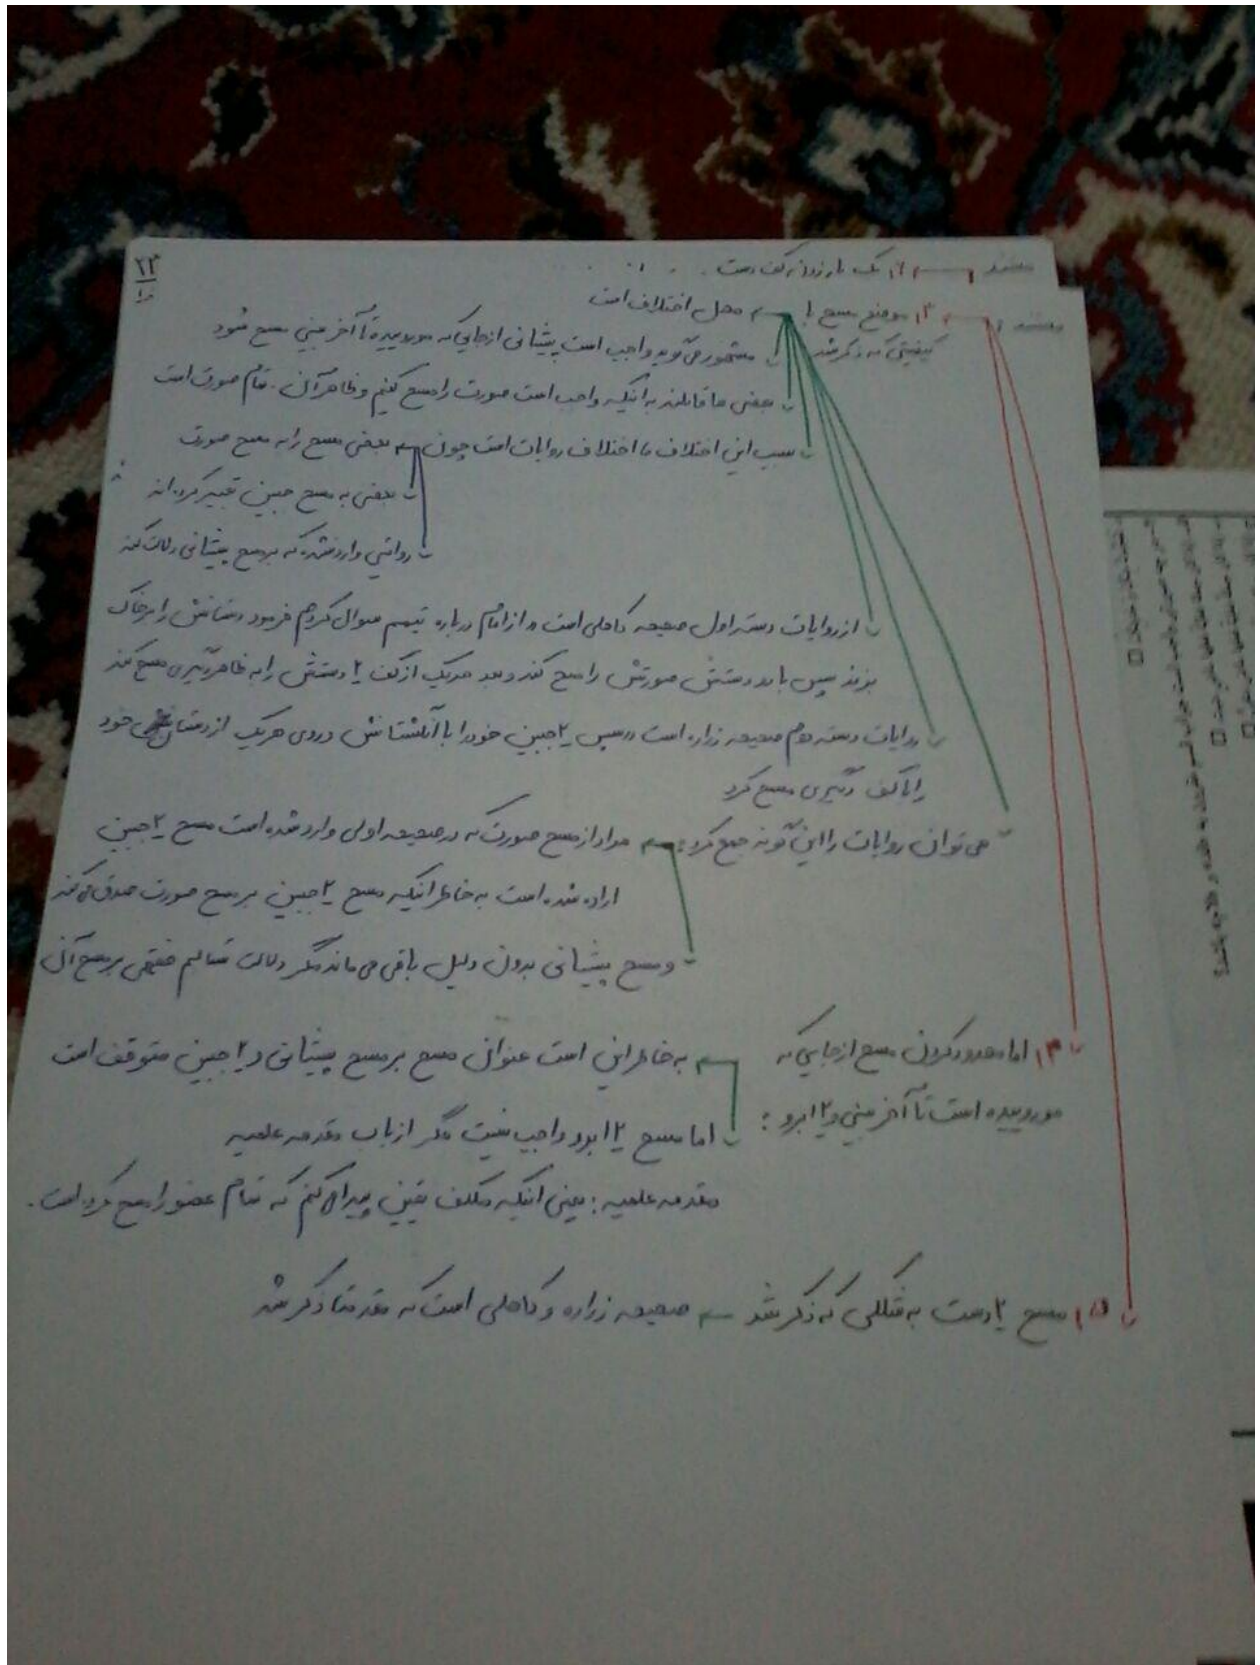 ۲۳
مستند ۲) یک بار زدن کف دست
مستند ۳) موضع مسح با محل اختلاف است
کیفیتی که ذکر شد
مشهور می گوید واجب است پیشانی از جایی که مو روییده تا آخر بینی مسح شود
بعضی ها قائلند به اینکه واجب است صورت را مسح کنیم و ظاهر آن تمام صورت است
سبب این اختلاف ها اختلاف روایات است چون بعضی مسح را به مسح صورت
بعضی به مسح جبین تعبیر کرده اند
روایتی وارد نشده که بر مسح پیشانی دلالت کند
از روایات دسته اول صحیحه کاهلی است از امام درباره تیمم سوال کردم فرمود دستانش را بر خاک
بزند سپس با دو دستش صورتش را مسح کند و بعد هریک از کف ۲ دستش را به ظاهر دیگری مسح کند
روایات دسته دوم صحیحه زراره است سپس ۲ جبین خود را با انگشتانش و روی هریک از دستان خود
را با کف دیگری مسح کرد
می توان روایات را این گونه جمع کرد: مراد از مسح صورت که در صحیحه اولی وارد شده است مسح ۲ جبین
اراده شده است به خاطر اینکه مسح ۲ جبین بر مسح صورت صدق می کند
و مسح پیشانی بدون دلیل باقی می ماند مگر دلالت تسالم فقهی بر مسح آن
۴) اما محدود کردن مسح از جایی که به خاطر این است عنوان مسح بر مسح پیشانی و ۲ جبین متوقف است
مو روییده است تا آخر بینی و ۲ ابرو : اما مسح ۲ ابرو واجب نیست مگر از باب مقدمه علمیه
مقدمه علمیه : یعنی اینکه مکلف یقین پیدا کنم که تمام عضو را مسح کرده است .
۵) مسح ۲ دست به شکلی که ذکر شد صحیحه زراره و کاهلی است که مقدمتا ذکر شد